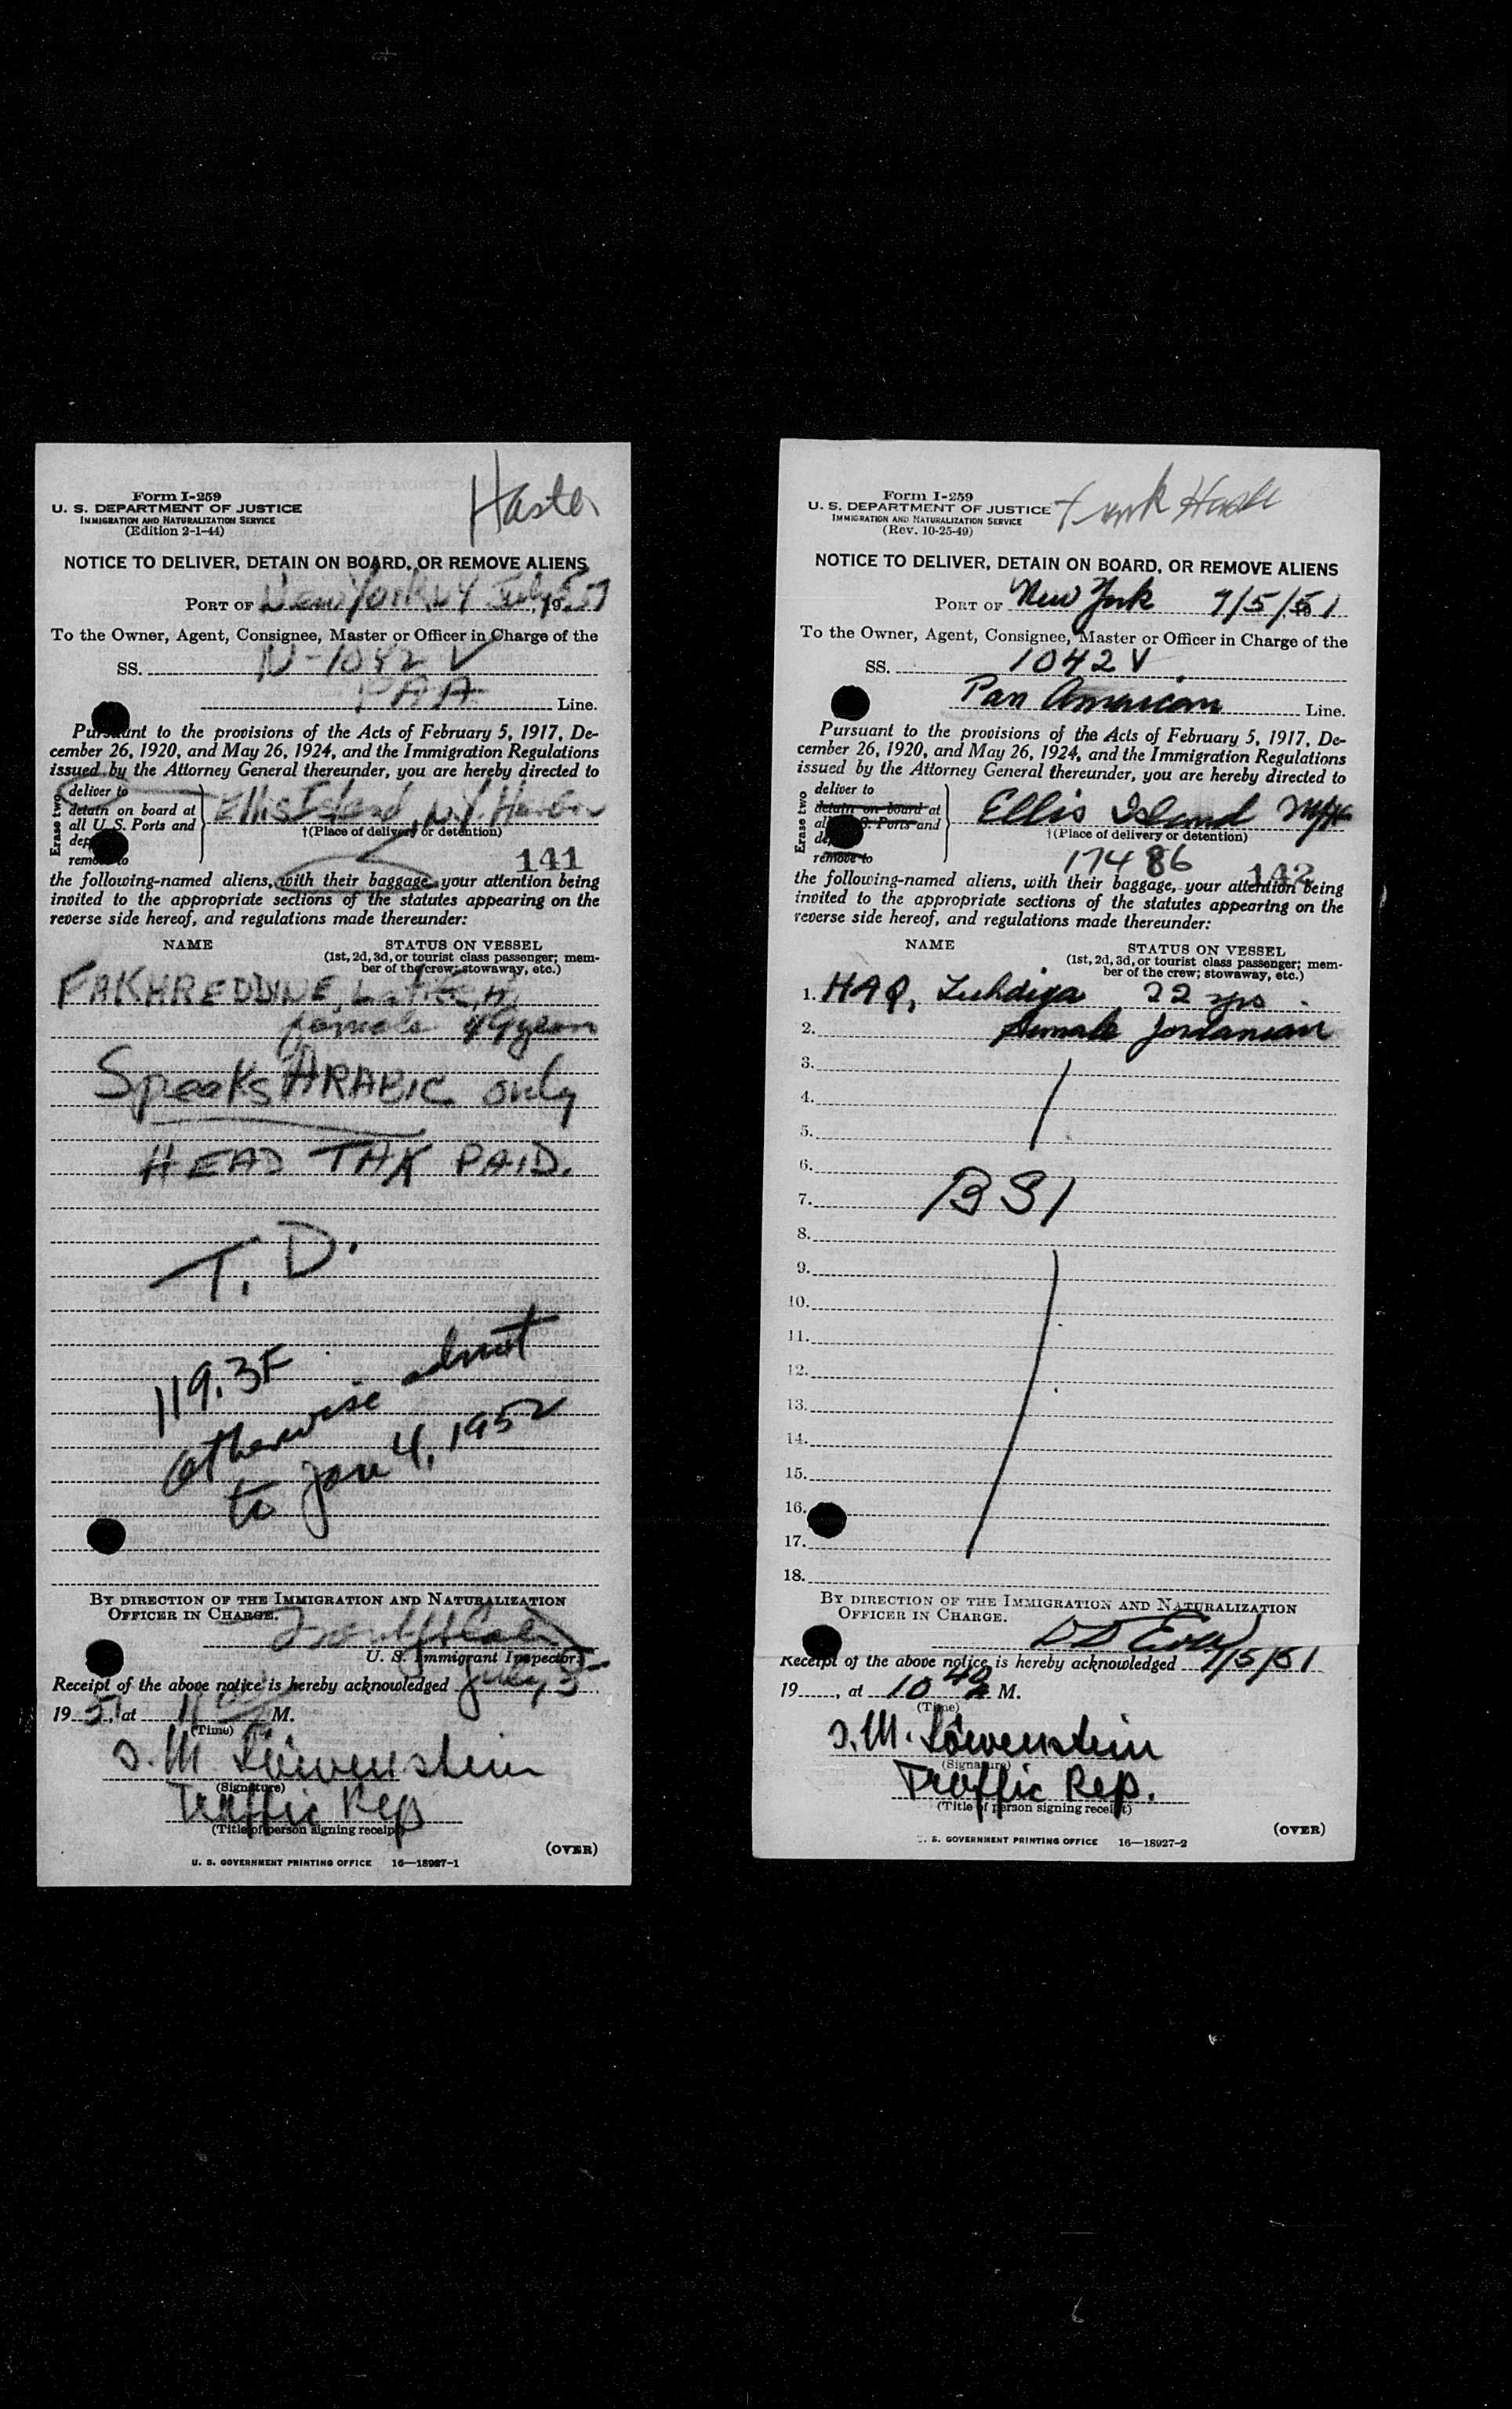 Form I-259
U. S. DEPARTMENT OF JUSTICE
IMMIGRATION AND NATURALIZATION SERVICE
(Edition 2-1-44)
NOTICE TO DELIVER, DETAIN ON BOARD, OR REMOVE ALIENS
PORT OF New York NY July 5, 1951
To the Owner, Agent, Consignee, Master or Officer in Charge of the
SS. N-1042 V
PAA Line.
Pursuant to the provisions of the Acts of February 5, 1917, De-
cember 26, 1920, and May 26, 1924, and the Immigration Regulations
issued by the Attorney General thereunder, you are hereby directed to
Erase two
deliver to
detain on board at
all U. S. Ports and
remove to
Ellis Island, N.Y. Harbor
†(Place of delivery or detention)
141
the following-named aliens, with their baggage, your attention being
invited to the appropriate sections of the statutes appearing on the
reverse side hereof, and regulations made thereunder:
NAME STATUS ON VESSEL
(1st, 2d, 3d, or tourist class passenger; mem-
ber of the crew; stowaway, etc.)
FAKHREDDINE,
female 49 years
Speaks ARABIC only
HEAD TAX PAID.
T. D.
119.3F
otherwise admit
to Jan 4, 1952
BY DIRECTION OF THE IMMIGRATION AND NATURALIZATION
OFFICER IN CHARGE.
U. S. Immigrant Inspector.
Receipt of the above notice is hereby acknowledged July 5
1951, at 11 M.
(Time)
S. M Löwenstein
(Signature)
Traffic Rep
(Title of person signing receipt)
(OVER)
U. S. GOVERNMENT PRINTING OFFICE 16—18927-1
Form I-259
U. S. DEPARTMENT OF JUSTICE
IMMIGRATION AND NATURALIZATION SERVICE
(Rev. 10-25-49)
NOTICE TO DELIVER, DETAIN ON BOARD, OR REMOVE ALIENS
PORT OF New York 7/5/51
To the Owner, Agent, Consignee, Master or Officer in Charge of the
SS. 1042 V
Pan American Line.
Pursuant to the provisions of the Acts of February 5, 1917, De-
cember 26, 1920, and May 26, 1924, and the Immigration Regulations
issued by the Attorney General thereunder, you are hereby directed to
Erase two
deliver to
detain on board at
all U. S. Ports and
remove to
Ellis Island
†(Place of delivery or detention)
17486 142
the following-named aliens, with their baggage, your attention being
invited to the appropriate sections of the statutes appearing on the
reverse side hereof, and regulations made thereunder:
NAME STATUS ON VESSEL
(1st, 2d, 3d, or tourist class passenger; mem-
ber of the crew; stowaway, etc.)
1. HAQ, 22 yrs
2. female Jordanian
3.
4.
5.
6.
7. BSI
8.
9.
10.
11.
12.
13.
14.
15.
16.
17.
18.
BY DIRECTION OF THE IMMIGRATION AND NATURALIZATION
OFFICER IN CHARGE.
Receipt of the above notice is hereby acknowledged 7/5/51
19, at 10 40 M.
(Time)
S. M. Löwenstein
(Signature)
Traffic Rep.
(Title of person signing receipt)
(OVER)
U. S. GOVERNMENT PRINTING OFFICE 16—18927-2